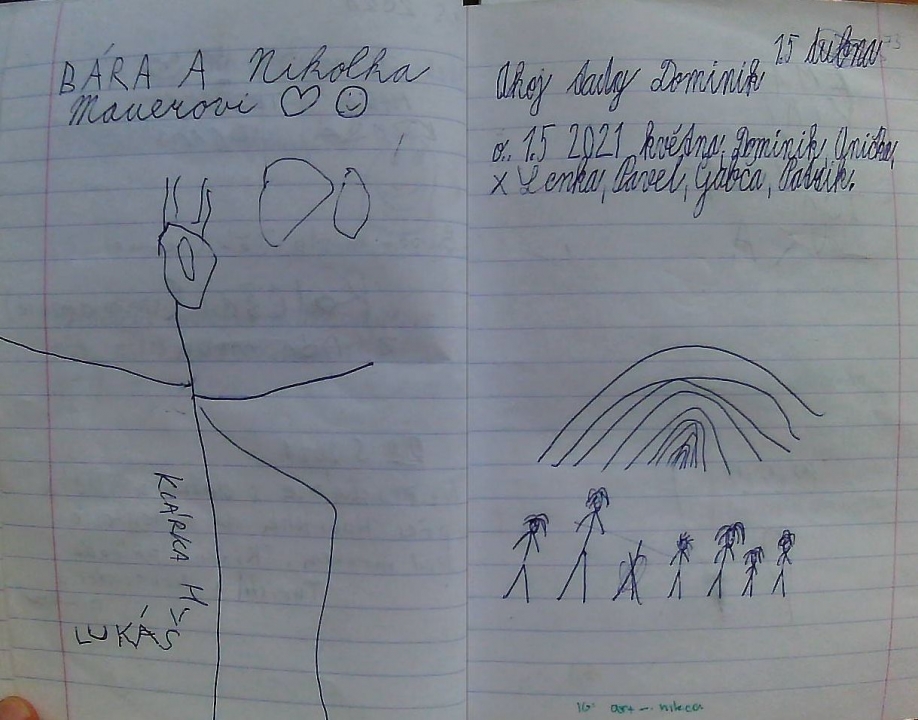 BÁRA A Nikolka
Mauerovi
KLÁRKA H
LUKÁŠ
15
Ahoj tady Dominik
15 2021 května. Dominik, Anička,
x Lenka, Pavel, Gábča, Patrik.